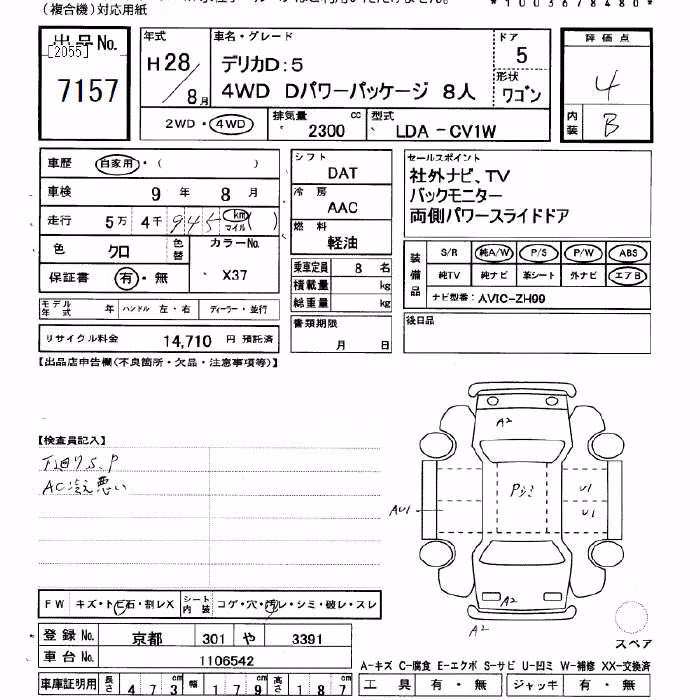 (複合機)対応用紙
*1003678480*
出品No.
[2055]
7157
年式
H28/8月
車名・グレード
デリカD:5
4WD Dパワーパッケージ 8人
ドア
5
形状
ワゴン
評価点
4
内装
B
2WD・4WD
排気量
2300 cc
型式
LDA-CV1W
車歴
自家用・( )
車検
9 年 8 月
走行
5万 4千 945 km マイル ( )
色
クロ
色替
カラーNo.
X37
保証書
有・無
シフト
DAT
冷房
AAC
燃料
軽油
乗車定員 8 名
積載量 kg
総重量 kg
セールスポイント
社外ナビ、TV
バックモニター
両側パワースライドドア
装備品
S/R 純A/W P/S P/W ABS
純TV 純ナビ 革シート 外ナビ エアB
ナビ型番: AVIC-ZH99
モデル年式 年 ハンドル 左・右 ディーラー・並行
リサイクル料金 14,710 円 預託済
書類期限
月 日
後日品
【出品店申告欄(不良箇所・欠品・注意事項等)】
【検査員記入】
下回りS.P
AC冷え悪い
A2
Pシミ
U1
U1
AU1
A2
A2
スペア
FW キズ・トビ石・割レX
シート内装 コゲ・穴・汚レ・シミ・破レ・スレ
登録No. 京都 301 や 3391
車台No. 1106542
車庫証明用 長さ 473cm 幅 179cm 高さ 187cm
A-キズ C-腐食 E-エクボ S-サビ U-凹ミ W-補修 XX-交換済
工具 有・無 ジャッキ 有・無